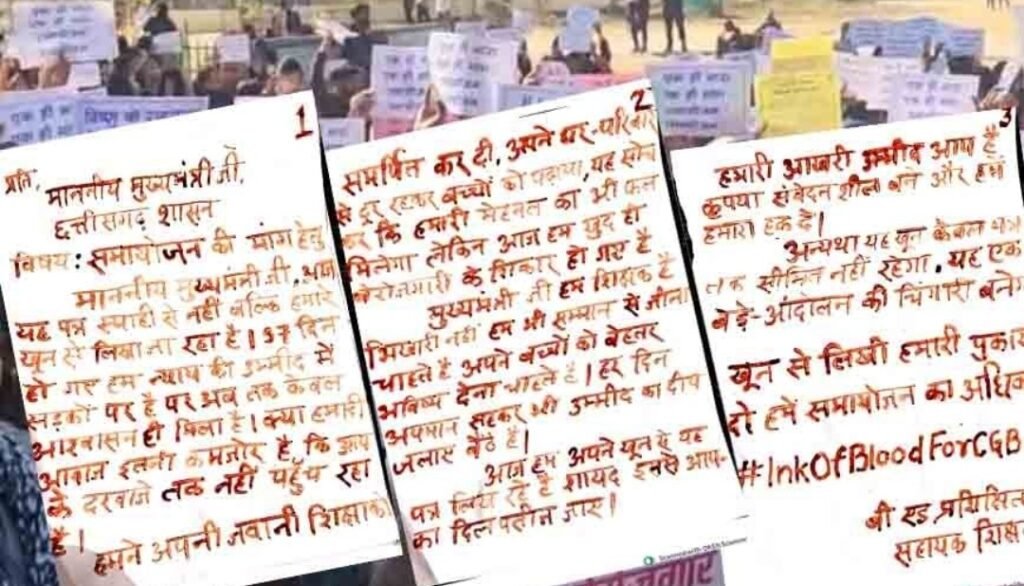 1
प्रति,
माननीय मुख्यमंत्री जी,
छत्तीसगढ़ शासन
विषय: समायोजन की मांग हेतु
माननीय मुख्यमंत्री जी, आज
यह पत्र स्याही से नहीं बल्कि हमारे
खून से लिखा जा रहा है। 57 दिन
हो गए हम न्याय की उम्मीद में
सड़कों पर है पर अब तक केवल
आश्वासन ही मिला है। क्या हमारी
आवाज इतनी कमजोर है, कि आप
के दरवाजे तक नहीं पहुँच रहा
है।
हमने अपनी जवानी शिक्षा को
2
समर्पित कर दी, अपने घर-परिवार
से दूर रहकर बच्चों को पढ़ाया, यह सोच
कर कि हमारी मेहनत का भी फल
मिलेगा लेकिन आज हम खुद ही
बेरोजगारी के शिकार हो गए है
मुख्यमंत्री जी हम शिक्षक है
भिखारी नहीं हम भी सम्मान से जीना
चाहते है अपने बच्चों को बेहतर
भविष्य देना चाहते है। हर दिन
अपमान सहकर भी उम्मीद का दीप
जलाए बैठे है।
आज हम अपने खून से यह
पत्र लिख रहे है शायद इनसे आप-
का दिल पसीज जाए।
3
हमारी आखरी उम्मीद आप है
कृपया संवेदनशील बने और हमें
हमारा हक दे।
अन्यथा यह खून केवल पत्र
तक सीमित नहीं रहेगा, यह एक
बड़े-आंदोलन की चिंगारी बनेगा
खून से लिखी हमारी पुकार
दो हमें समायोजन का अधि
#InkOfBloodForCGB
बी एड प्रशिक्षित
सहायक शिक्षक